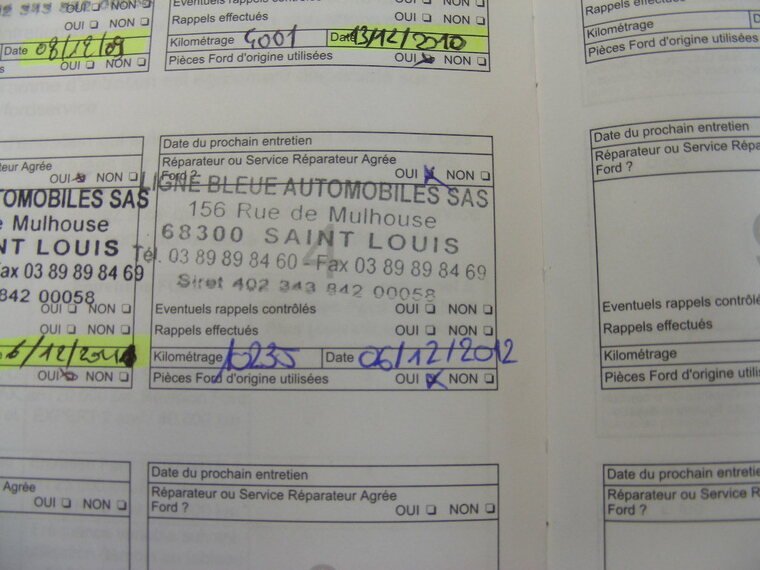 OUI ❑ NON ❑
Date 08/12/09
OUI ❑ NON ❑
OUI ❑ NON ❑
Rappels effectués OUI ❑ NON ❑
Kilométrage 4001 Date 13/12/2010
Pièces Ford d'origine utilisées OUI ❑ NON ❑
Rappels effectués
Kilométrage
Pièces Ford d'origine utilisées
Agrée
OUI ❑ NON ❑
TOMOBILES SAS
e Mulhouse
NT LOUIS
Fax 03 89 89 84 69
842 00058
OUI ❑ NON ❑
OUI ❑ NON ❑
OUI ❑ NON ❑
Date du prochain entretien
Réparateur ou Service Réparateur Agrée
Ford ? OUI ❑ NON ❑
LIGNE BLEUE AUTOMOBILES SAS
156 Rue de Mulhouse
68300 SAINT LOUIS
4
Tél. 03 89 89 84 60 - Fax 03 89 89 84 69
Siret 402 343 842 00058
Eventuels rappels contrôlés OUI ❑ NON ❑
Rappels effectués OUI ❑ NON ❑
Kilométrage 10235 Date 06/12/2012
Pièces Ford d'origine utilisées OUI ❑ NON ❑
Date du prochain entretien
Réparateur ou Service
Ford ?
Eventuels rappels contrôlés
Rappels effectués
Kilométrage
Pièces Ford d'origine
Agrée
OUI ❑ NON ❑
Date du prochain entretien
Réparateur ou Service Réparateur Agrée
Ford ? OUI ❑ NON ❑
Date du prochain
Réparateur ou Service
Ford ?